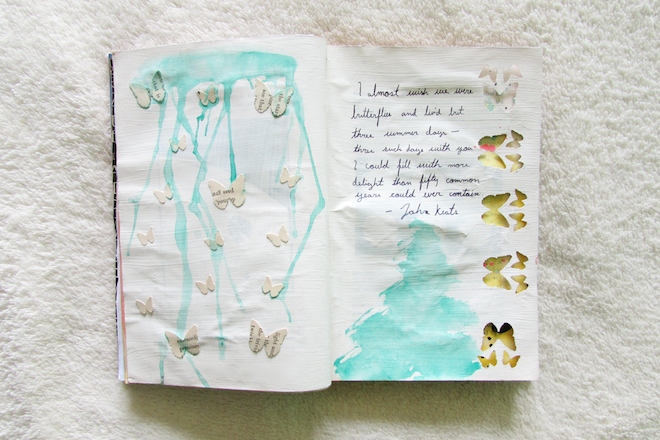 I almost wish we were
butterflies and liv'd but
three summer days —
three such days with you
I could fill with more
delight than fifty common
years could ever contain
- John Keats